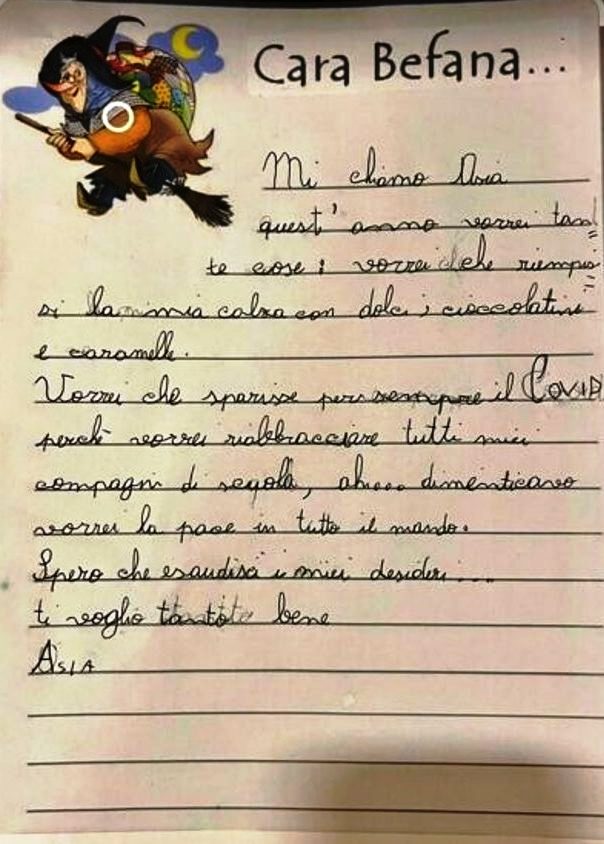 Cara Befana...
Mi chiamo Asia
quest'anno vorrei tan=
te cose: vorrei che riempis=
si la mia calza con dolci, cioccolatini
e caramelle.
Vorrei che sparisse per sempre il COVID
perchè vorrei riabbracciare tutti miei
compagni di squola, ah.... dimenticavo
vorrei la pace in tutto il mondo.
Spero che esaudisai i miei desideri....
ti voglio tanto bene
ASIA